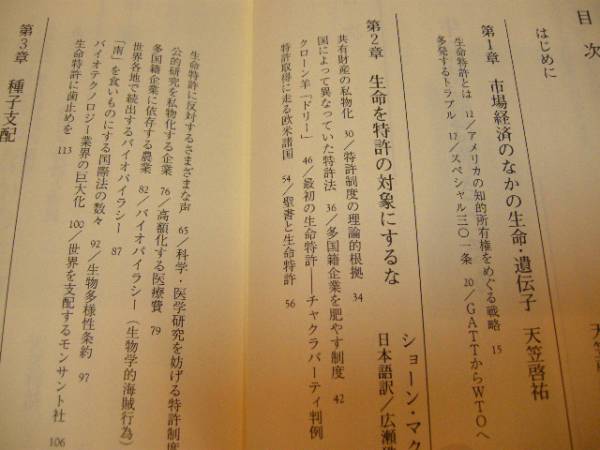 目次
はじめに
第1章 市場経済のなかの生命・遺伝子 天笠啓祐
生命特許とは 12／アメリカの知的所有権をめぐる戦略 15
多発するトラブル 17／スペシャル三〇一条 20／GATTからWTOへ
第2章 生命を特許の対象にするな
ショーン・マク
日本語訳／広瀬
共有財産の私物化 30／特許制度の理論的根拠 34
国によって異なっていた特許法 36／多国籍企業を肥やす制度 42
クローン羊「ドリー」 46／最初の生命特許――チャクラバーティ判例
特許取得に走る欧米諸国 54／聖書と生命特許 56
生命特許に反対するさまざまな声 65／科学・医学研究を妨げる特許制度
公的研究を私物化する企業 76／高額化する医療費 79
多国籍企業に依存する農業 82／バイオパイラシー（生物学的海賊行為）
世界各地で続出するバイオパイラシー 87
「南」を食いものにする国際法の数々 92／生物多様性条約 97
バイオテクノロジー業界の巨大化 100／世界を支配するモンサント社 106
生命特許に歯止めを 113
第3章 種子支配